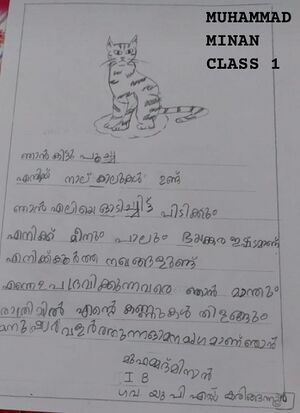 MUHAMMAD
MINAN
CLASS 1
ഞാൻ കിട്ടു പൂച്ച
എനിക്ക് നാല് കാലുകൾ ഉണ്ട്
ഞാൻ എലിയെ ഓടിച്ചിട്ട് പിടിക്കും
എനിക്ക് മീനും പാലും ഭയങ്കര ഇഷ്ടമാണ്
എനിക്ക് കൂർത്ത നഖങ്ങളുണ്ട്
എന്നെ ഉപദ്രവിക്കുന്നവരെ ഞാൻ മാന്തും
രാത്രിയിൽ എന്റെ കണ്ണുകൾ തിളങ്ങും
മനുഷ്യർ വളർത്തുന്ന ഓമന മൃഗമാണ് ഞാൻ
മുഹമ്മദ് മിനാൻ
I B
ഗവ യു പി എസ് കരിങ്ങന്നൂർ